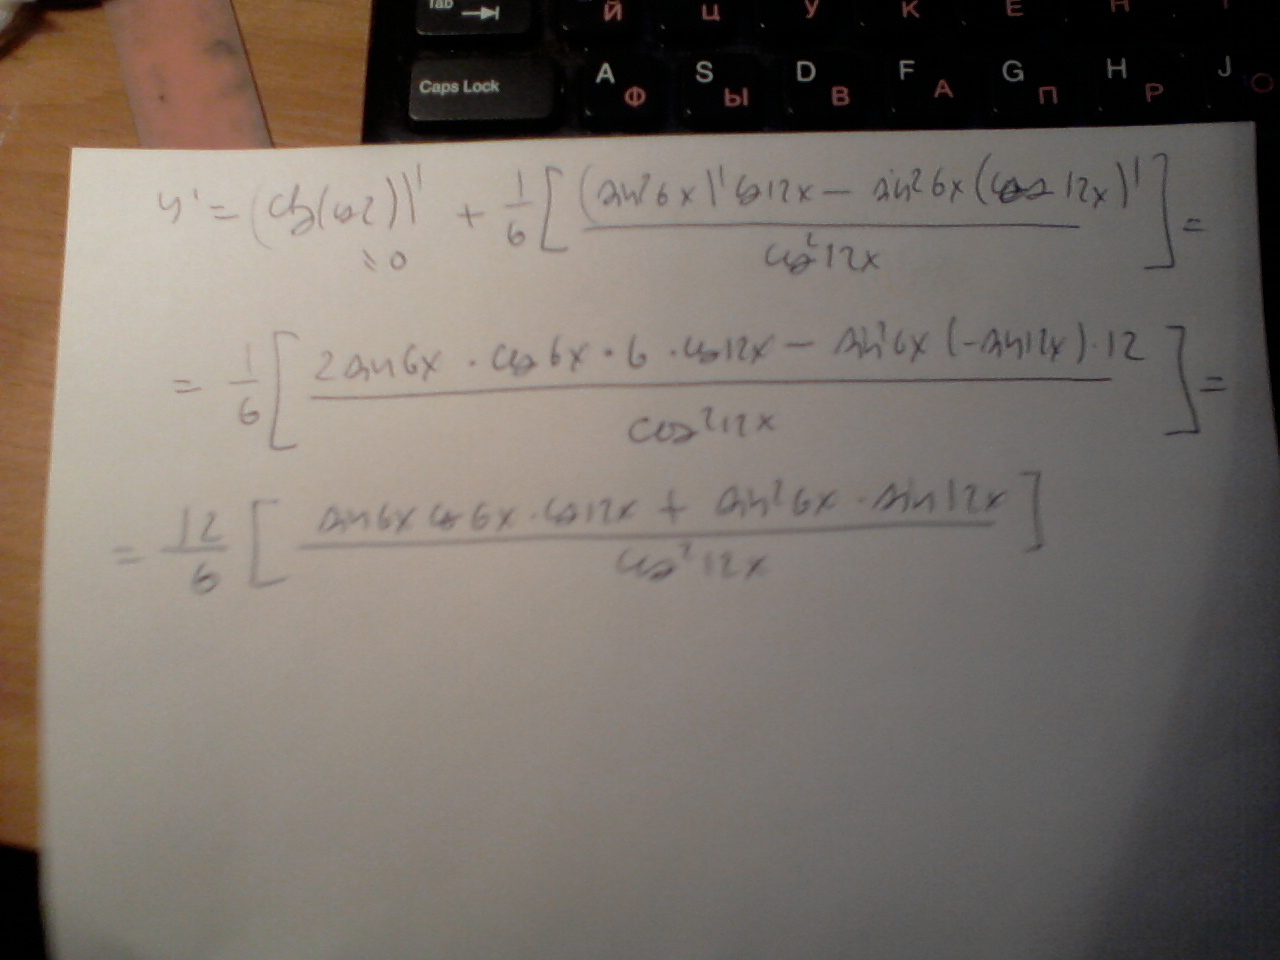 Tab Й Ц У К Е Н
Caps Lock A Ф S Ы D В F А G П H Р J О
y' = (ctg(cos2))' + 1/6 [ ((sin²6x)' cos12x − sin²6x (cos 12x)') / cos²12x ] =
= 0
= 1/6 [ (2sin6x · cos6x · 6 · cos12x − sin²6x (−sin12x) · 12) / cos²12x ] =
= 12/6 [ (sin6x cos6x · cos12x + sin²6x · sin12x) / cos²12x ]